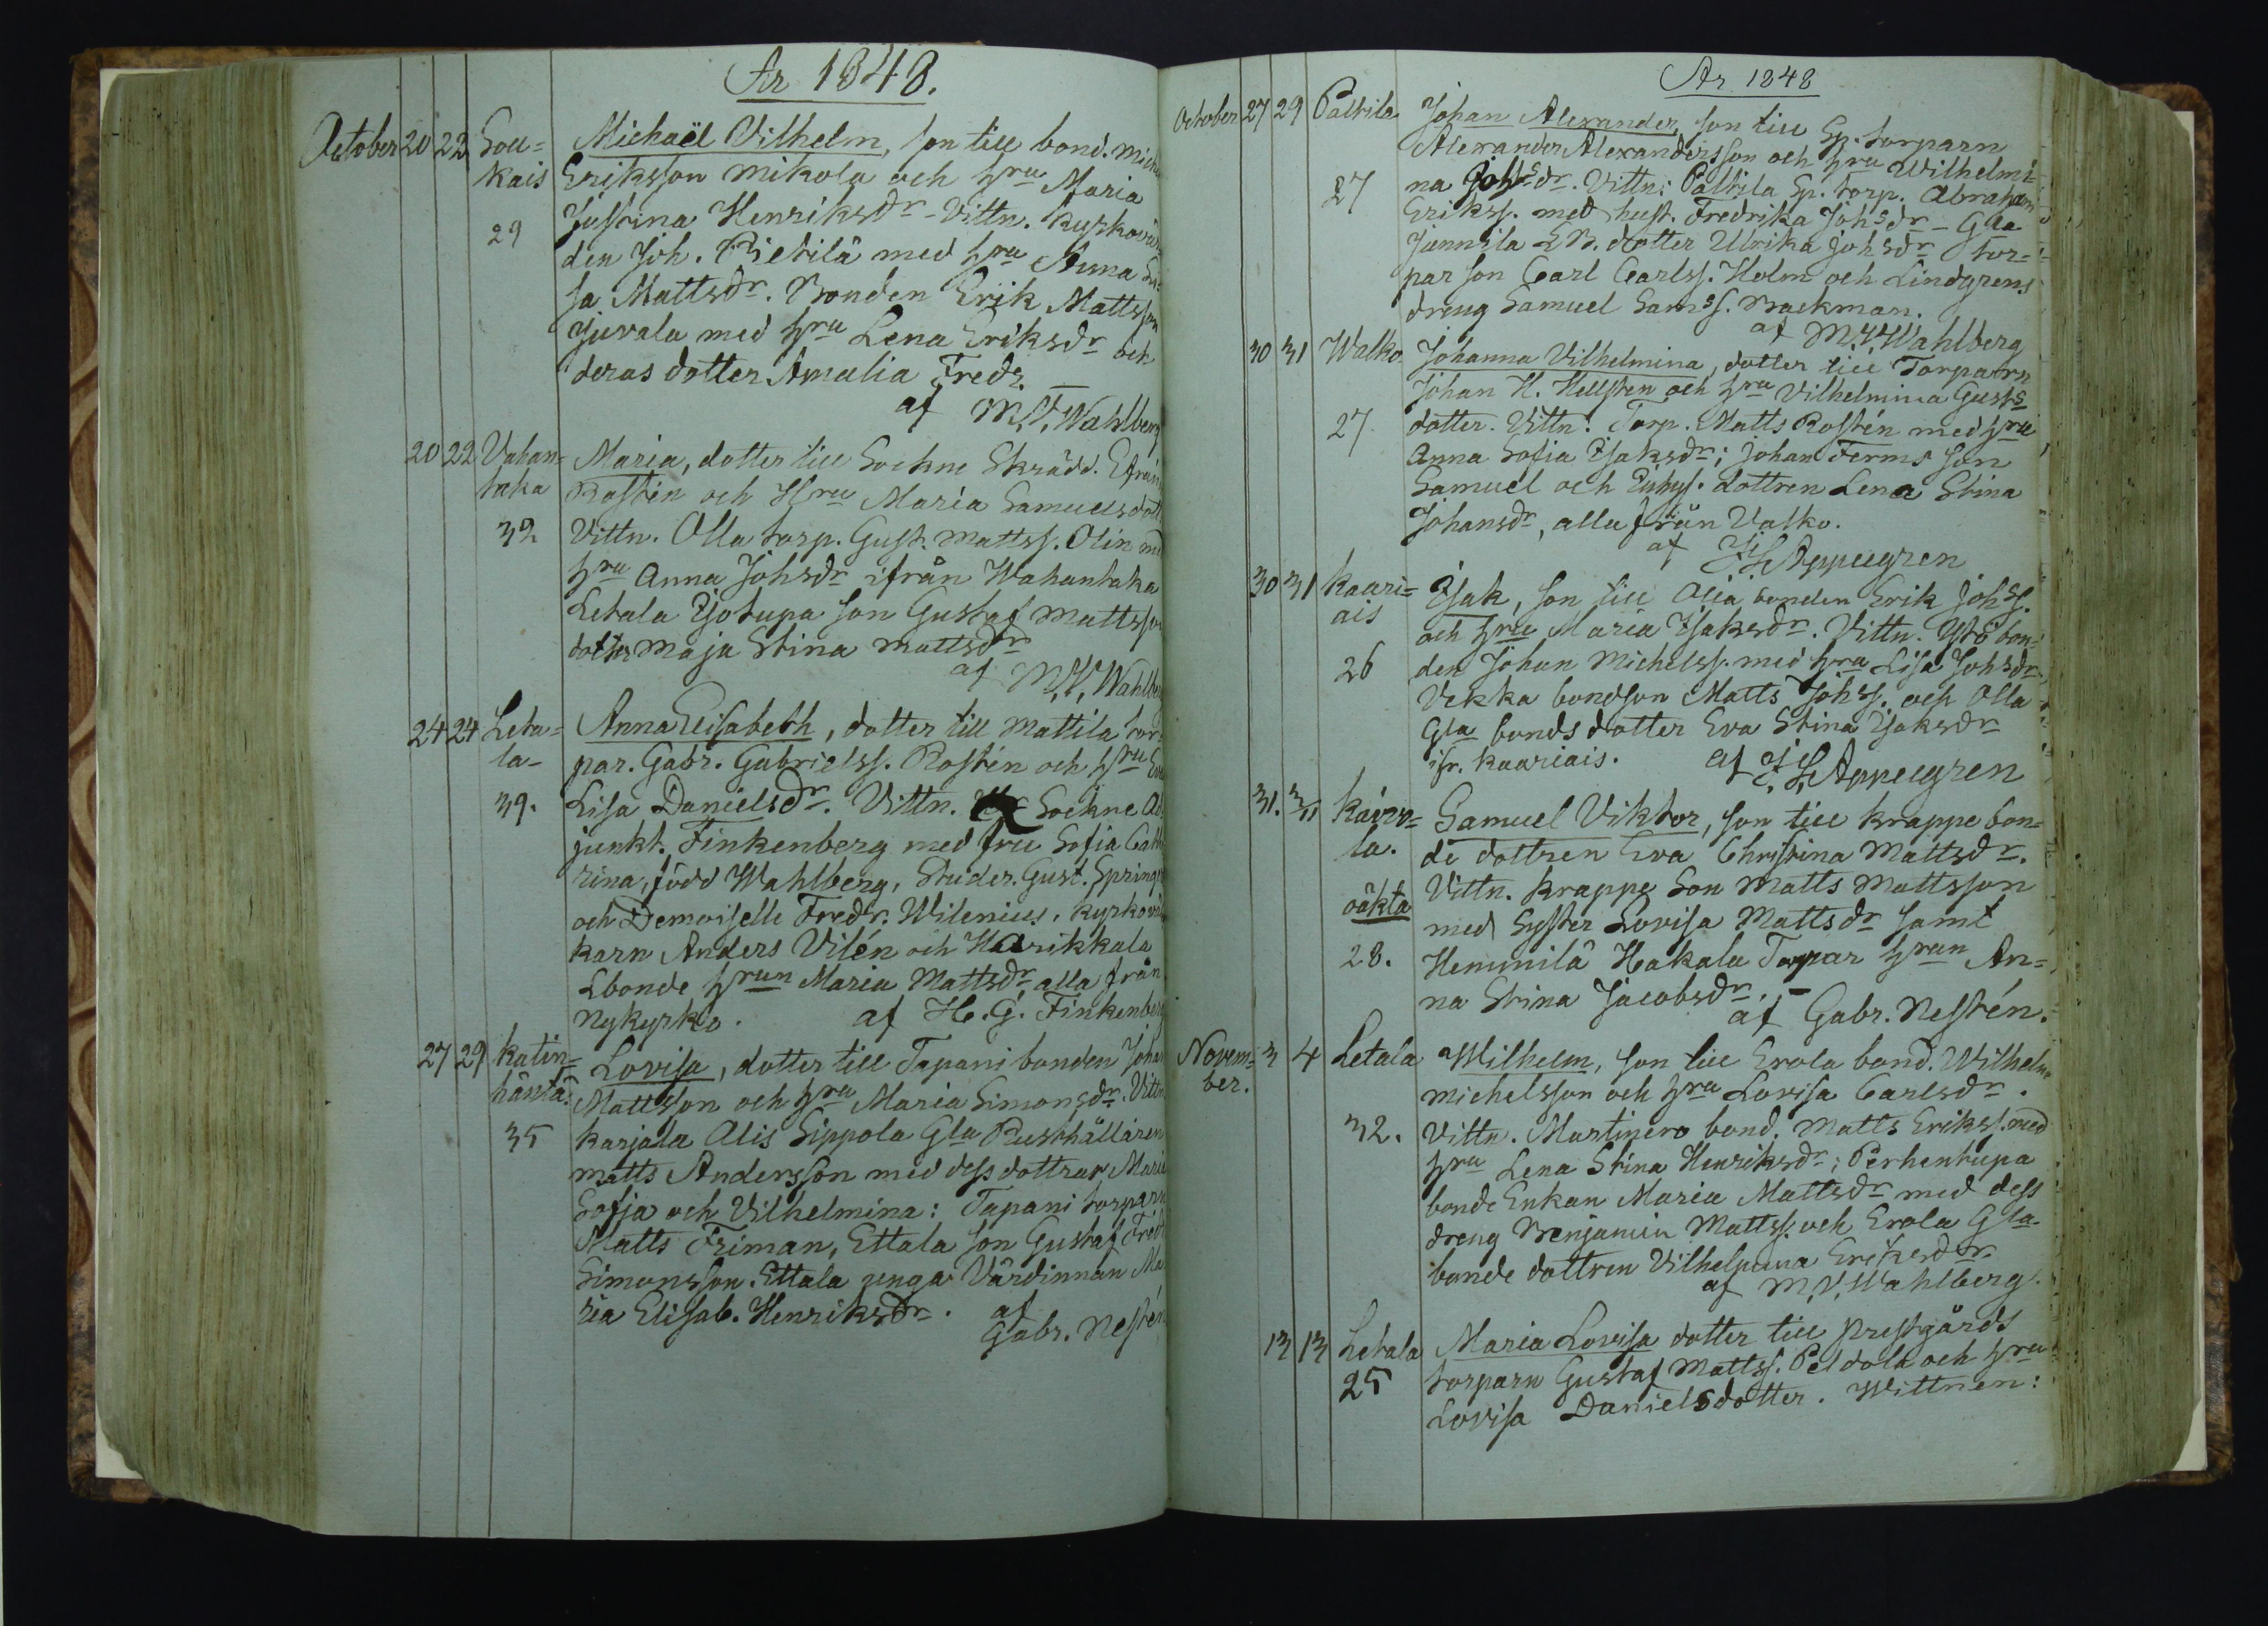 År 1848.
October 20 22 Sou=
kais
29
Michaël Vilhelm, son till bond. Mich
Eriksson Mikola och hru Maria
Justina Henriksdr - Vittn. kyrkovär
den Joh. Pietilä med hru Anna
sa Mattsdr. Bonden Erik Mattsson
Juvala med hru Lena Eriksdr och
deras dotter Amalia Fredr. —
af M.V. Wahlberg
20 22 Vahan=
taka
32
Maria, dotter till Sockne Skrädd. Efraim
Rostén och Hru Maria Samuelsdott
Vittn. Olla torp. Gust. Mattss. Olin med
hru Anna Johsdr ifrån Wahantaka
Letala Isotupa son Gustaf Mattsson
dotter Maja Stina Mattsdr
af M.V. Wahlberg
24 24 Leta=
la-
39.
Anna Elisabeth, dotter till Mattila tor
par. Gabr. Gabrielss. Rostén och hru Eva
Lisa Danielsdr. Vittn. Sockne Ad
junkt. Finkenberg med fru Sofia Cath
rina, född Wahlberg, Studer. Gust. Springer
och Demoiselle Fredr. Wilenius, kyrkovä
karn Anders Vilén och Haarikkala
Lbonde hrun Maria Mattsdr alla från
Nykyrko. af H. G. Finkenberg
27 29 Katin=
häntä.
35
Lovisa, dotter till Tapani bonden Johan
Mattsson och hru Maria Simonsdr. Vittn
karjala Alis Sippola Gla Rusthållaren
Matts Andersson med dess dottrar Maria
Sofja och Vilhelmina: Tapani torparn
Matts Friman, Ettala son Gustaf Fredr
Simonsson. Ettala unga Värdinnan Ma
ria Elisab. Henriksdr. af
Gabr. Nestén
År 1848
October 27 29 Paltila
27
Johan Alexander, son till Sp. torparn
Alexander Alexandersson och hru Wilhelmi=
na Johsdr. Vittn: Paltila Sp. torp. Abraham
Erikss. med hust. Fredrika Johsdr - Gla
Junnila dotter Ulrika Johsdr tor=
par son Carl Carlss. Holm och Lindgrens
dreng Samuel Samss. Backman.
af M.V. Wahlberg
30 31 Walko
27
Johanna Vilhelmina, dotter till Torparn
Johan H. Hellsten och hru Vilhelmina Gusts
dotter. Vittn: Torp. Matts Rostén med hru
Anna Sofia Isaksdr; Johan Ferms son
Samuel och dottren Lena Stina
Johansdr, alla från Valko.
af Appelgren
30 31 Kaari=
ais
26
Isak, son till Alia bonden Erik Johss.
och hru Maria Isaksdr. Vittn. Ylö bon=
den Johan Michelss. med hru Lisa Johsdr
Vekka bondson Matts Johss. och Olla
Gla bonds dotter Eva Stina Isaksdr
ifr. Kaariais. af Appelgren
31. 31 Kairo=
la.
oäkta
28.
Samuel Viktor, son till Krappe bon=
de dottren Eva Christina Mattsdr.
Vittn. Krappe Son Matts Mattsson
med Syster Lovisa Mattsdr samt
Hemmilä Hakala Torpar hrun An=
na Stina Jacobsdr. -
af Gabr. Nestén.
Novem=
ber. 3 4 Letala
32.
Wilhelm, son till Erola bond. Wilhelm
Michelsson och hru Lovisa Carlsdr.
Vittn. Martinero bond. Matts Erikss. med
hru Lena Stina Henriksdr; Perhentupa
bonde Enkan Maria Mattsdr med dess
dreng Benjamin Mattss. och Erola Gla
bonde dottren Vilhelmina Eriksdr
af M.V. Wahlberg.
13 13 Letala
25
Maria Lovisa dotter till Prestgårds
torparn Gustaf Mattss. Peldola och hru
Lovisa Danielsdotter. Wittnen: